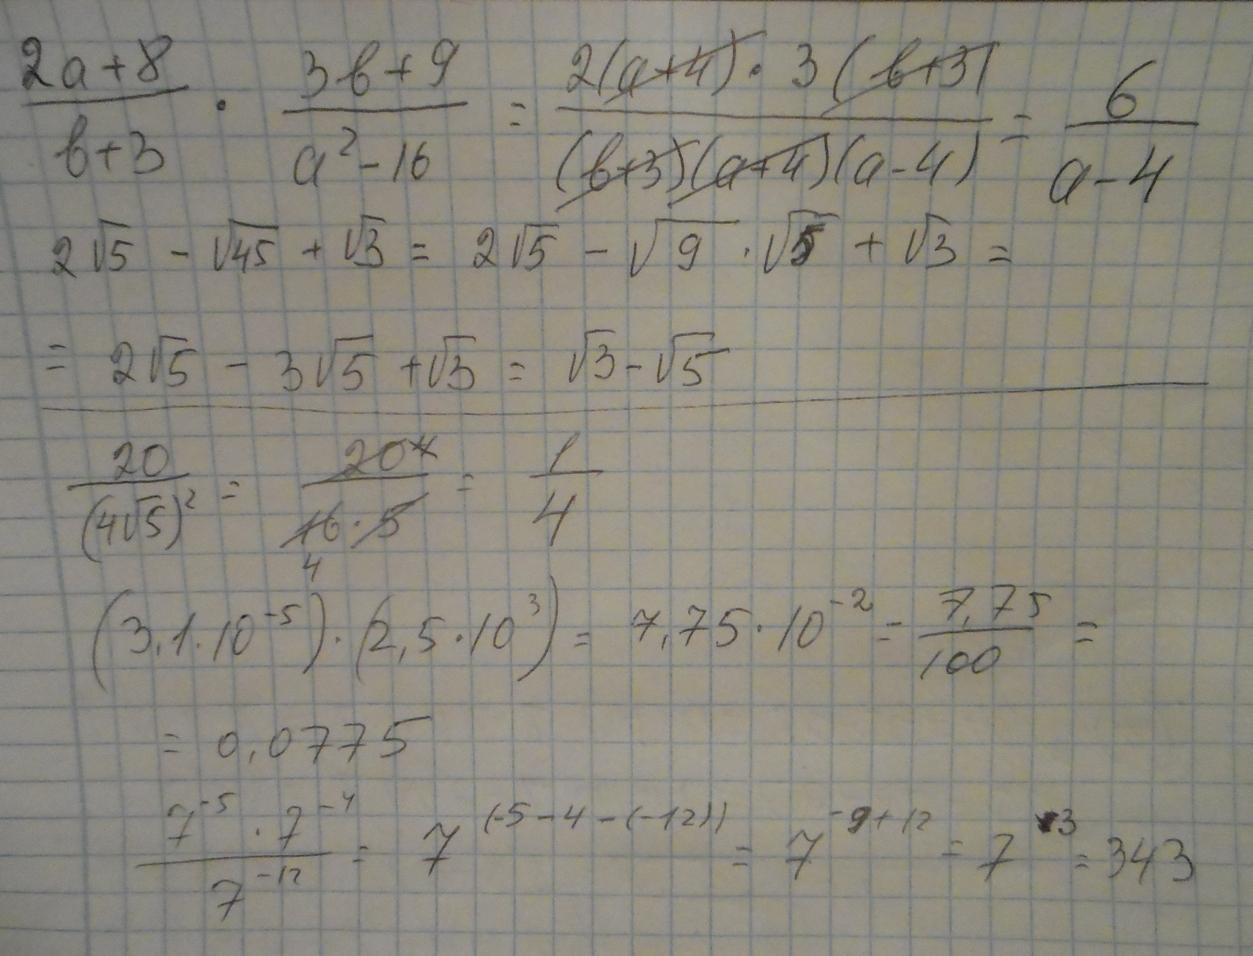 (2a+8)/(b+3) · (3b+9)/(a²-16) = (2(a+4) · 3(b+3))/((b+3)(a+4)(a-4)) = 6/(a-4)
2√5 - √45 + √3 = 2√5 - √9 · √5 + √3 =
= 2√5 - 3√5 + √3 = √3 - √5
20/(4√5)² = 20/(16·5) = 1/4
4
(3,1·10⁻⁵)·(2,5·10³) = 7,75·10⁻² = 7,75/100 =
= 0,0775
(7⁻⁵ · 7⁻⁴)/7⁻¹² = 7^(-5-4-(-12)) = 7^(-9+12) = 7³ = 343